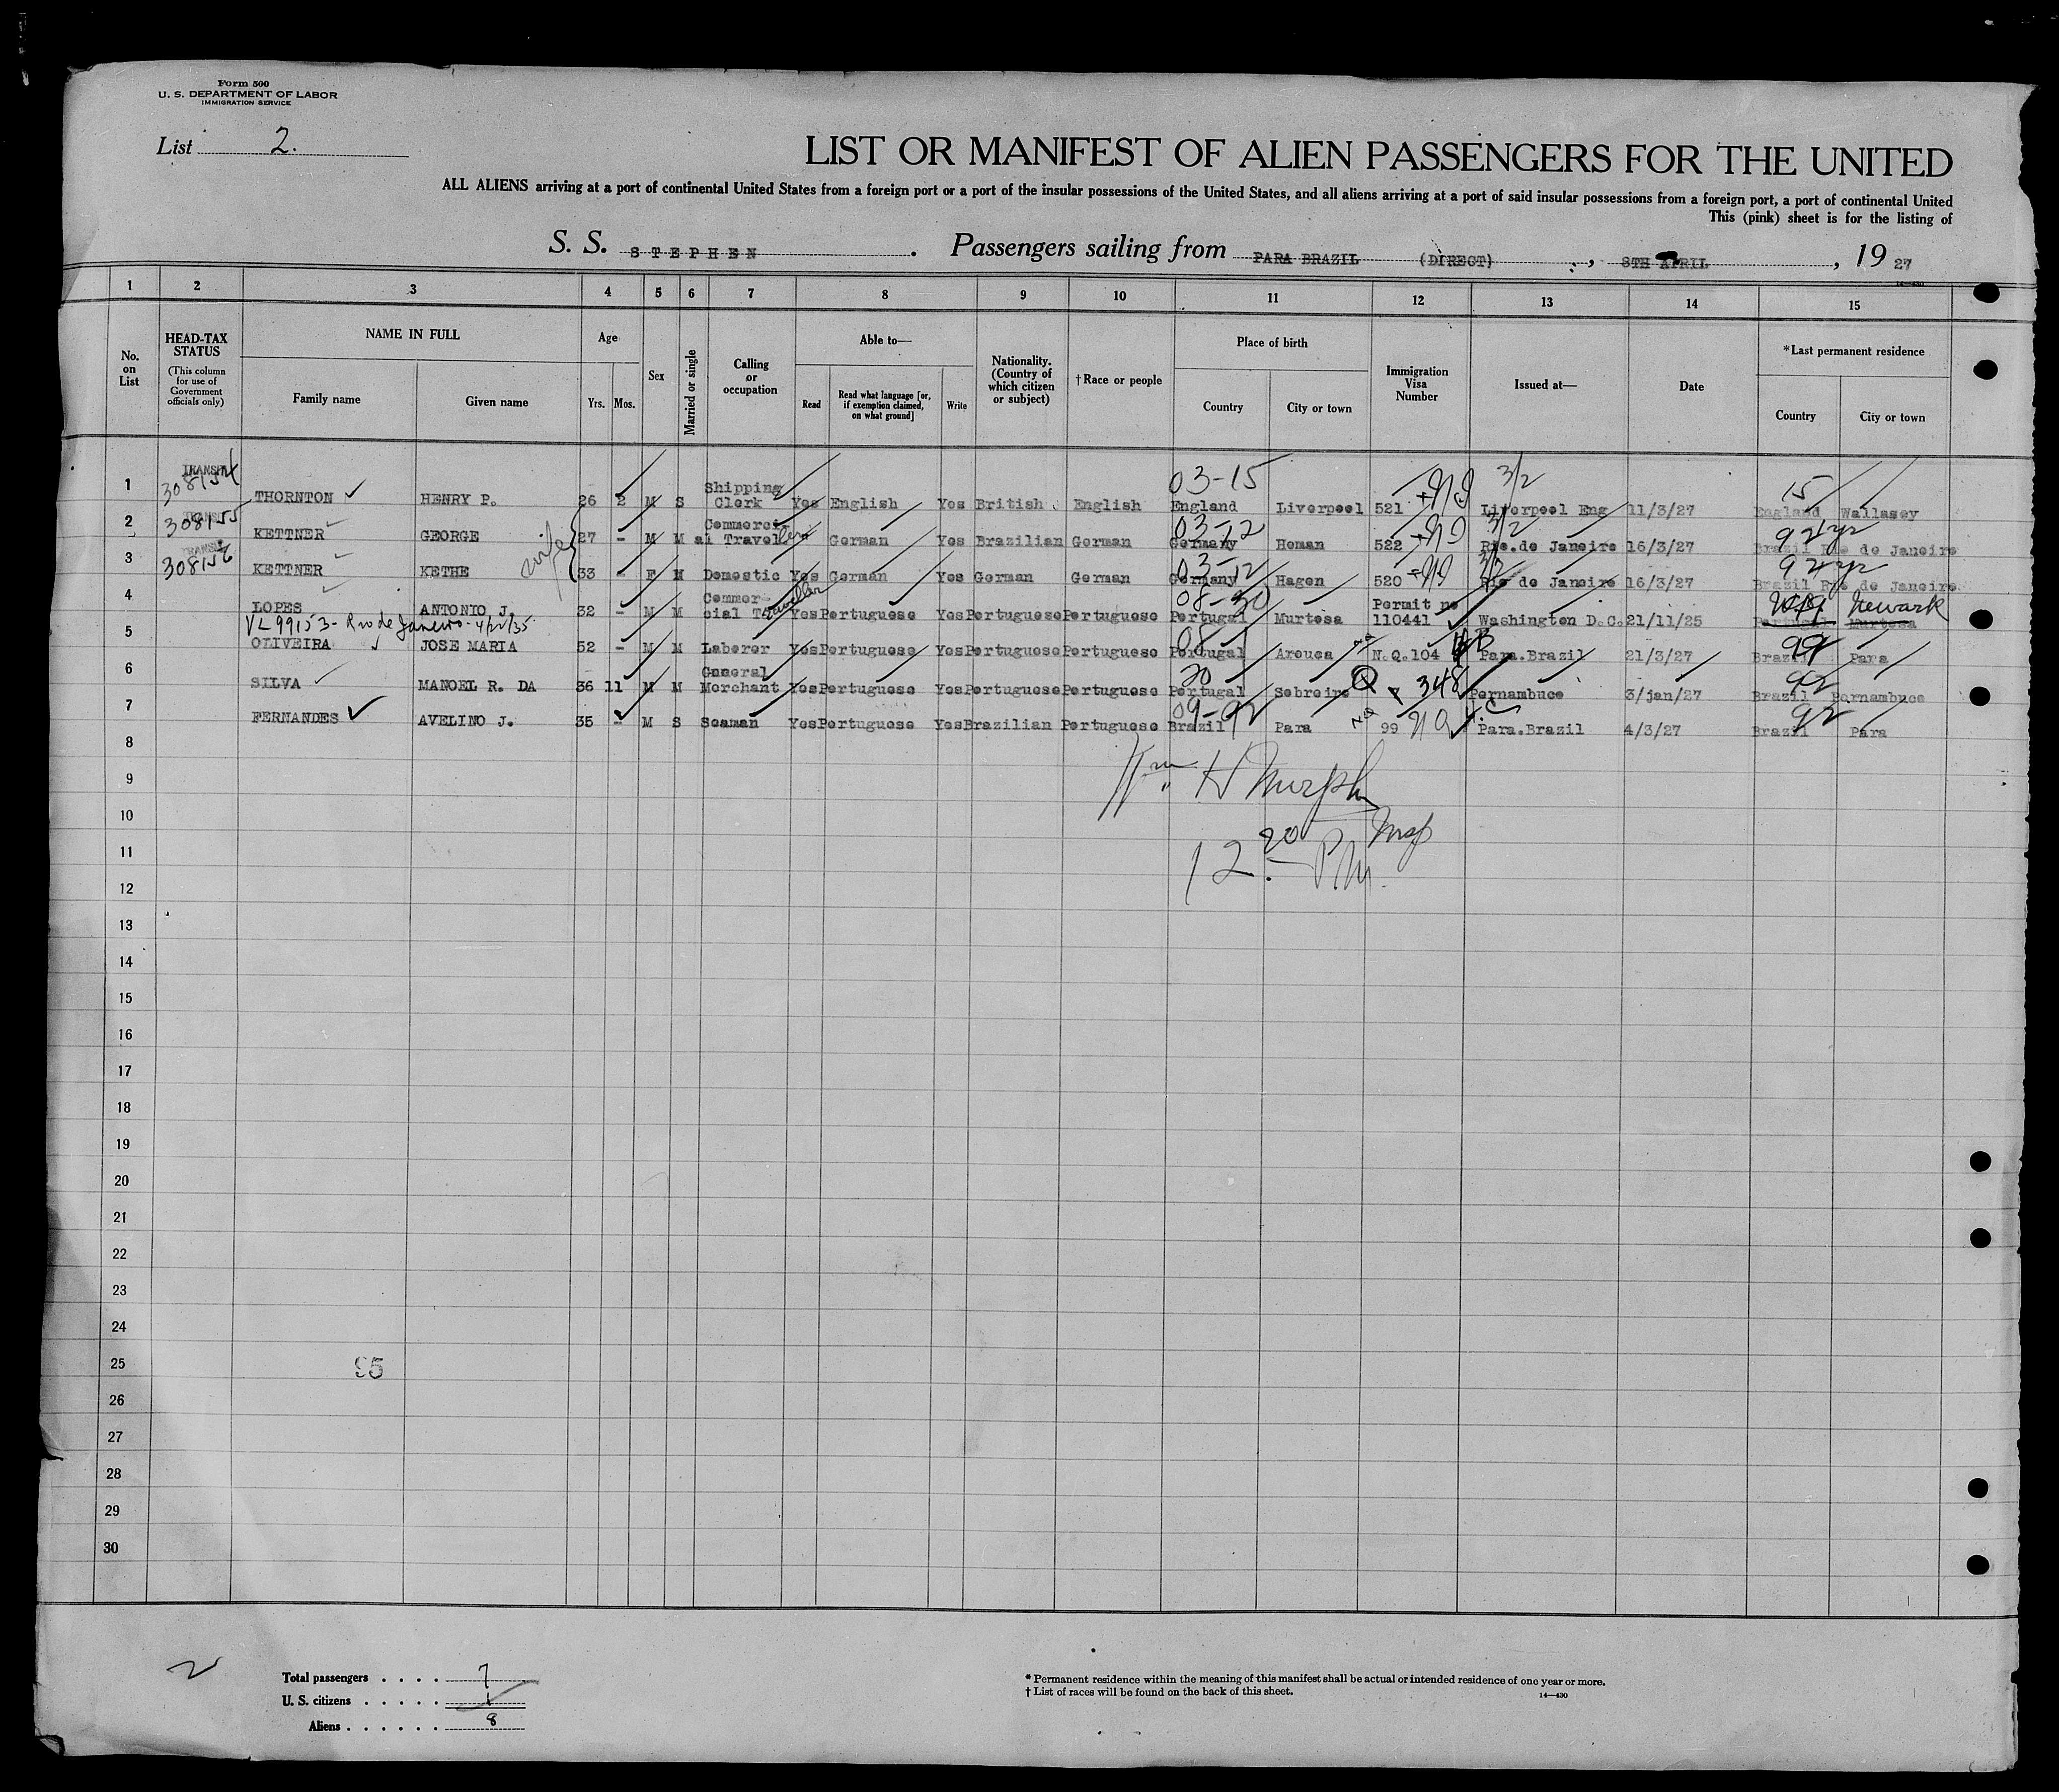 Form 500
U. S. DEPARTMENT OF LABOR
IMMIGRATION SERVICE
List 2.
LIST OR MANIFEST OF ALIEN PASSENGERS FOR THE UNITED
ALL ALIENS arriving at a port of continental United States from a foreign port or a port of the insular possessions of the United States, and all aliens arriving at a port of said insular possessions from a foreign port, a port of continental United
This (pink) sheet is for the listing of
S. S. STEPHEN. Passengers sailing from PARA BRAZIL (DIRECT), 8TH APRIL, 19 27
14—430
1 2 3 4 5 6 7 8 9 10 11 12 13 14 15
No. on List
HEAD-TAX STATUS
(This column for use of Government officials only)
NAME IN FULL
Family name
Given name
Age
Yrs. Mos.
Sex
Married or single
Calling or occupation
Able to—
Read
Read what language [or, if exemption claimed, on what ground]
Write
Nationality. (Country of which citizen or subject)
†Race or people
Place of birth
Country
City or town
Immigration Visa Number
Issued at—
Date
*Last permanent residence
Country
City or town
03-15 3/2 15
1 308154 THORNTON HENRY P. 26 2 M S Shipping Clerk Yes English Yes British English England Liverpool 521 Liverpool Eng 11/3/27 England Wallasey
03-12 3/2 92
2 308155 KETTNER GEORGE 27 - M M Commerci-al Travel Yes German Yes Brazilian German Germany Homan 522 Rio.de Janeiro 16/3/27 Brazil Rio de Janeiro
wife
03-12 92
3 308156 KETTNER KETHE 33 - F M Domestic Yes German Yes German German Germany Hagen 520 Rio de Janeiro 16/3/27 Brazil Rio de Janeiro
08-30 Newark
4 LOPES ANTONIO J. 32 - M M Commer-cial Traveller Yes Portuguese Yes Portuguese Portuguese Portugal Murtosa Permit no 110441 Washington D.C. 21/11/25 Portugal Murtosa
VL 99153- Rio de Janeiro- 4/22/35
08 99
5 OLIVEIRA JOSE MARIA 52 - M M Laborer Yes Portuguese Yes Portuguese Portuguese Portugal Arouca N.Q.104 Para.Brazil 21/3/27 Brazil Para
20 92
6 SILVA MANOEL R. DA 36 11 M M General Merchant Yes Portuguese Yes Portuguese Portuguese Portugal Sobreiro Q 348 Pernambuco 3/jan/27 Brazil Pernambuco
09-92 92
7 FERNANDES AVELINO J. 35 - M S Seaman Yes Portuguese Yes Brazilian Portuguese Brazil Para 99 NQ Para.Brazil 4/3/27 Brazil Para
8
Wm H Murphy
9
10
Insp
11
12.20 P.M.
12
13
14
15
16
17
18
19
20
21
22
23
24
25
95
26
27
28
29
30
2
Total passengers . . . . 7
U. S. citizens . . . . . 1
Aliens . . . . . . 8
* Permanent residence within the meaning of this manifest shall be actual or intended residence of one year or more.
† List of races will be found on the back of this sheet.
14—430